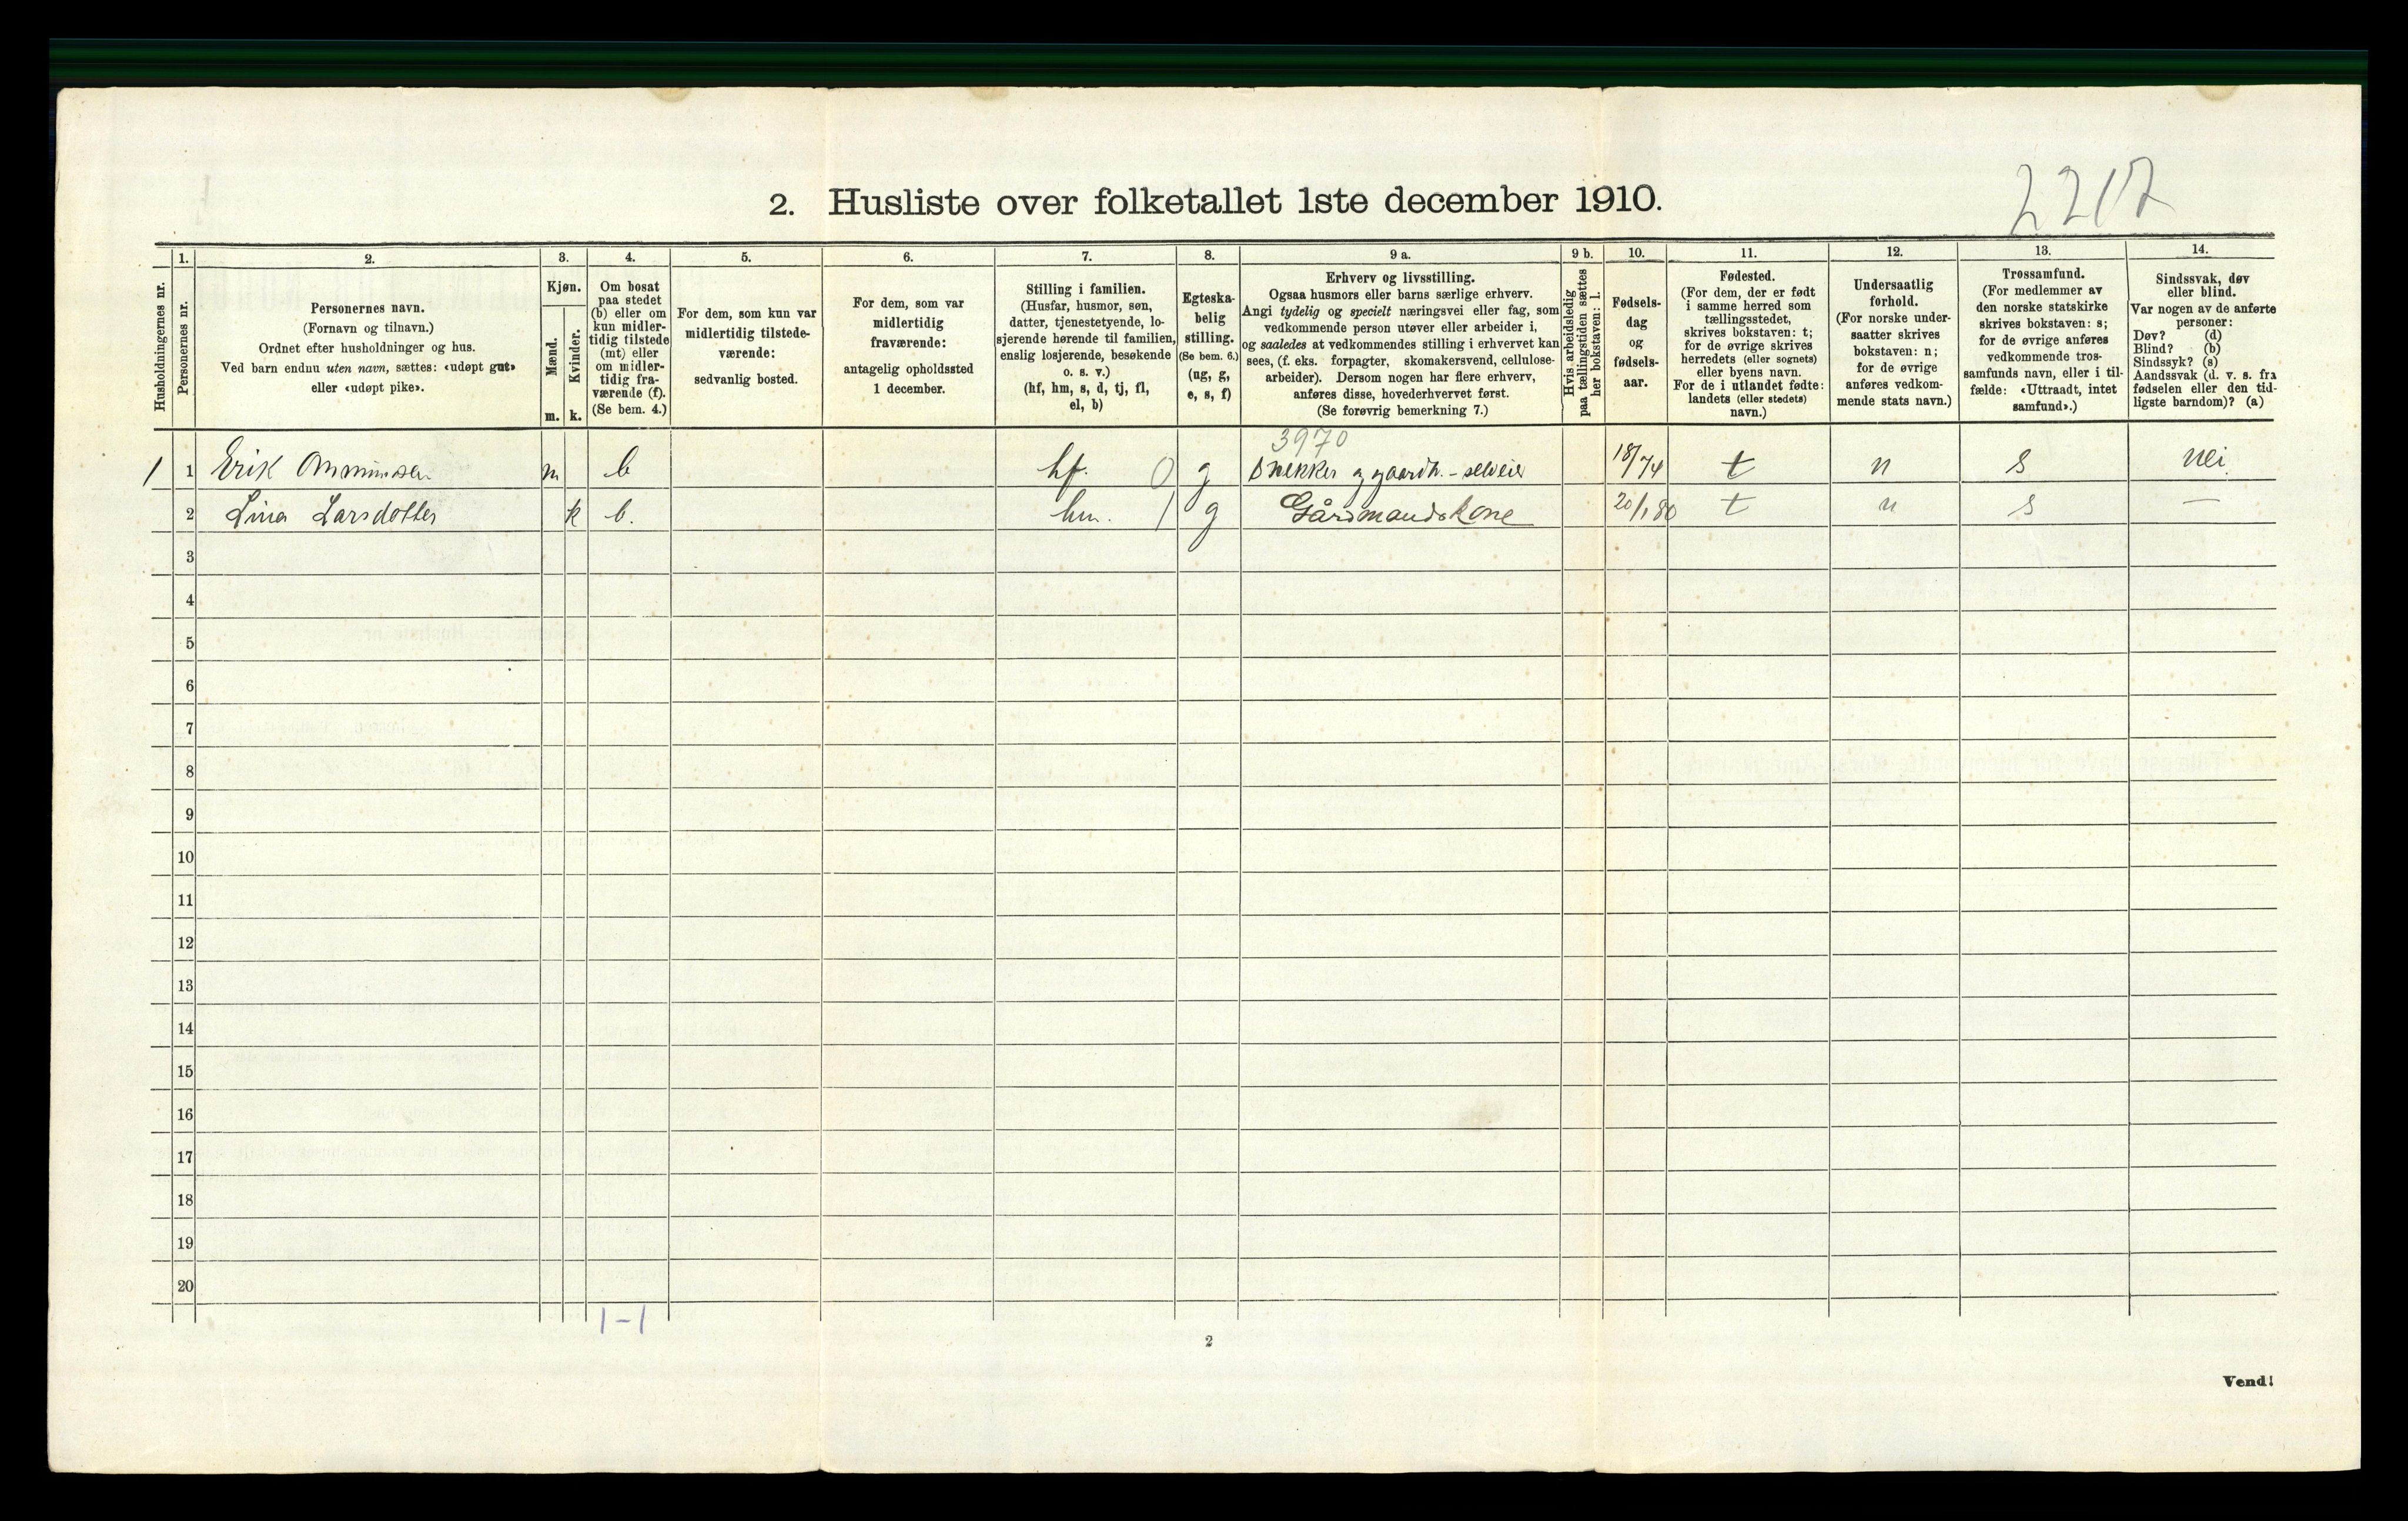 2217
2. Husliste over folketallet 1ste december 1910.
Husholdningernes nr.
1.
Personernes nr.
2.
Personernes navn.
(Fornavn og tilnavn.)
Ordnet efter husholdninger og hus.
Ved barn endnu uten navn, sættes: «udøpt gut»
eller «udøpt pike».
3.
Kjøn.
Mænd.
m.
Kvinder.
k.
4.
Om bosat
paa stedet
(b) eller om
kun midler-
tidig tilstede
(mt) eller
om midler-
tidig fra-
værende (f).
(Se bem. 4.)
5.
For dem, som kun var
midlertidig tilstede-
værende:
sedvanlig bosted.
6.
For dem, som var
midlertidig
fraværende:
antagelig opholdssted
1 december.
7.
Stilling i familien.
(Husfar, husmor, søn,
datter, tjenestetyende, lo-
sjerende hørende til familien,
enslig losjerende, besøkende
o. s. v.)
(hf, hm, s, d, tj, fl,
el, b)
8.
Egteska-
belig
stilling.
(Se bem. 6.)
(ug, g,
e, s, f)
9 a.
Erhverv og livsstilling.
Ogsaa husmors eller barns særlige erhverv.
Angi tydelig og specielt næringsvei eller fag, som
vedkommende person utøver eller arbeider i,
og saaledes at vedkommendes stilling i erhvervet kan
sees, (f. eks. forpagter, skomakersvend, cellulose-
arbeider). Dersom nogen har flere erhverv,
anføres disse, hovederhvervet først.
(Se forøvrig bemerkning 7.)
9 b.
Hvis arbeidsledig
paa tællingstiden sættes
her bokstaven: l.
10.
Fødsels-
dag
og
fødsels-
aar.
11.
Fødested.
(For dem, der er født
i samme herred som
tællingsstedet,
skrives bokstaven: t;
for de øvrige skrives
herredets (eller sognets)
eller byens navn.
For de i utlandet fødte:
landets (eller stedets)
navn.)
12.
Undersaatlig
forhold.
(For norske under-
saatter skrives
bokstaven: n;
for de øvrige
anføres vedkom-
mende stats navn.)
13.
Trossamfund.
(For medlemmer av
den norske statskirke
skrives bokstaven: s;
for de øvrige anføres
vedkommende tros-
samfunds navn, eller i til-
fælde: «Uttraadt, intet
samfund».)
14.
Sindssvak, døv
eller blind.
Var nogen av de anførte
personer:
Døv? (d)
Blind? (b)
Sindssyk? (s)
Aandssvak (d. v. s. fra
fødselen eller den tid-
ligste barndom)? (a)
3970
1 1 Erik m b hf. 0 g Snekker g gaardb. - selveier 18/74 t n s nei.
2 Lina Larsdotter k b. hm. 1 g Gårdmandskone 20/1 80 t n s —
3
4
5
6
7
8
9
10
11
12
13
14
15
16
17
18
19
20
1-1
2
Vend!